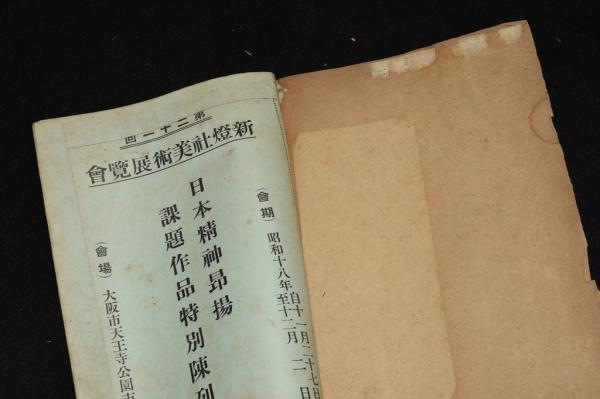 第二十一回
新燈社美術展覽會
日本精神昂揚
課題作品特別陳列
（會期）昭和十八年
自十一月二十七日
至十二月二日
（會場）大阪市天王寺公園